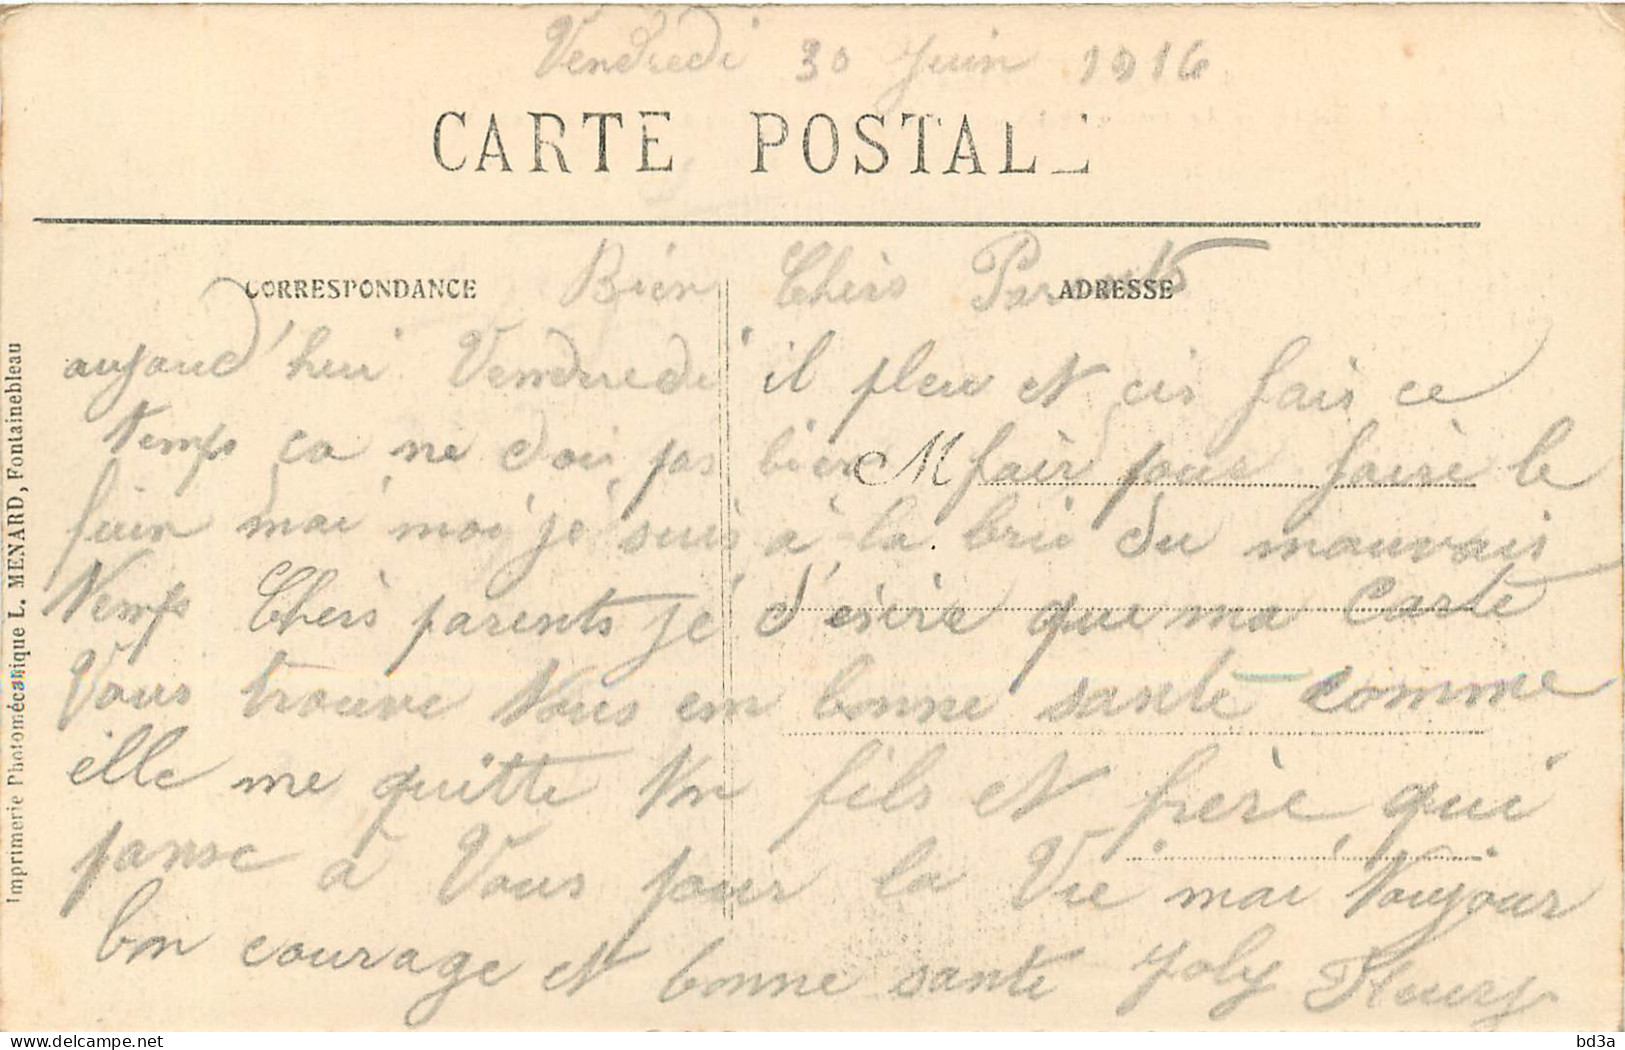 Vendredi 30 Juin 1916
CARTE POSTALE
CORRESPONDANCE
ADRESSE
Bien Chers Parents
aujourd'hui Vendredi il pleu et cis fais ce
temps ca ne doi pas bien fair pour faire le
M
foin mai moi je suis à la brie du mauvais
temps Chers parents je d'esire que ma Carte
Vous trouve tous en bonne sante comme
elle me quitte ton fils et frère qui
panse a Vous pour la Vie mai toujour
bon courage et bonne sante Joly Fleury
Imprimerie Photomécanique L. MENARD, Fontainebleau
bd3a